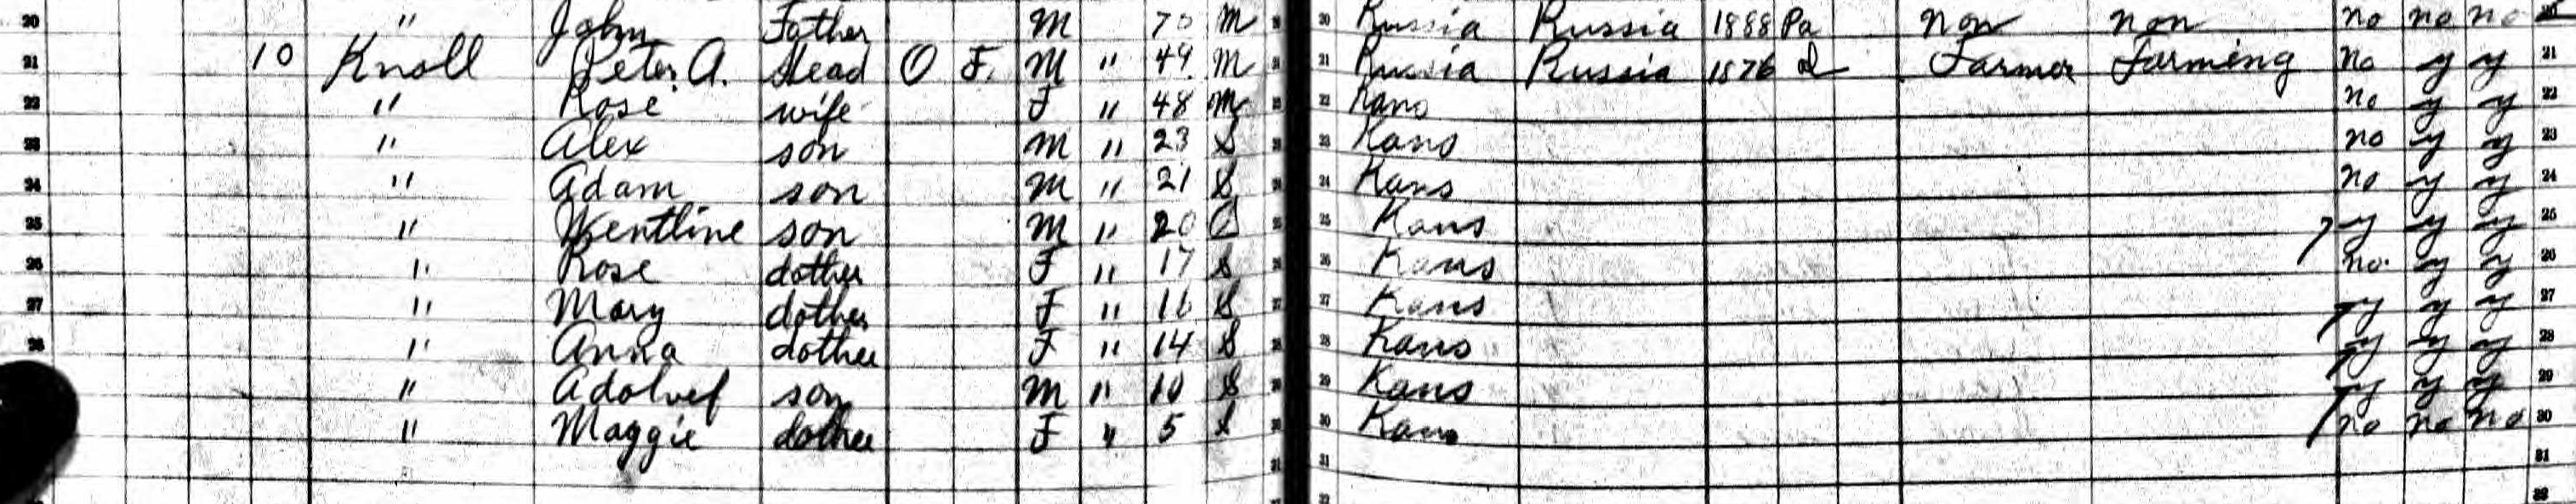 20 " John Father M 75 M 20 Russia Russia 1888 Pa non non no no no
21 10 Knoll Peter A. Head O F. M " 49 M 21 Russia Russia 1876 Farmer Farming no y y 21
22 " Rose wife F " 48 M 22 Kans no y y 22
23 " Alex son M " 23 S 23 Kans no y y 23
24 " Adam son M " 21 S 24 Kans no y y 24
25 " Wentline son M " 20 S 25 Kans y y y 25
26 " Rose dother F " 17 S 26 Kans no. y y 26
27 " Mary dother F " 16 S 27 Kans y y y 27
28 " Anna dother F " 14 S 28 Kans y y y 28
29 " Adolvef son M " 10 S 29 Kans y y y 29
" Maggie dother F " 5 S 30 Kans no no no 30
31 31 31
32 32